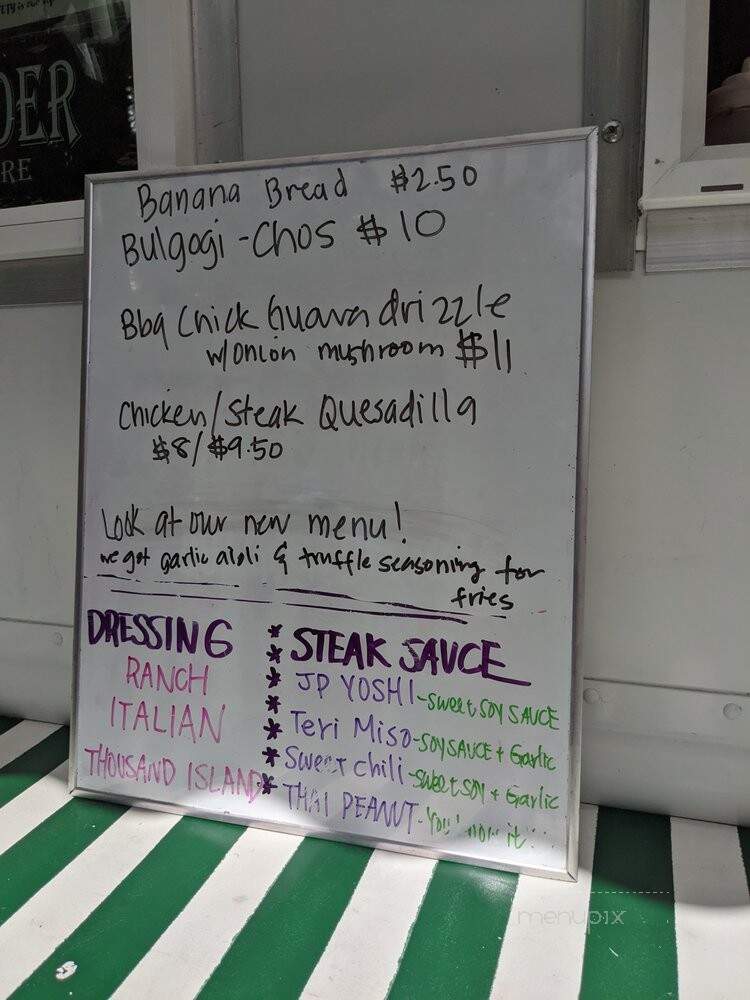 DER
RE
Banana Bread $2.50
Bulgogi-Chos $10
Bbq Chick Guava drizzle
w/onion mushroom $11
Chicken/Steak Quesadilla
$8/$9.50
Look at our new menu!
we got garlic aioli & truffle seasoning for
fries
DRESSING
RANCH
ITALIAN
THOUSAND ISLAND
* STEAK SAUCE
* JP YOSHI-Sweet SOY SAUCE
* Teri Miso-SOYSAUCE + Garlic
* Sweet Chili-Sweet SOY + Garlic
* THAI PEANUT-You it
menupix